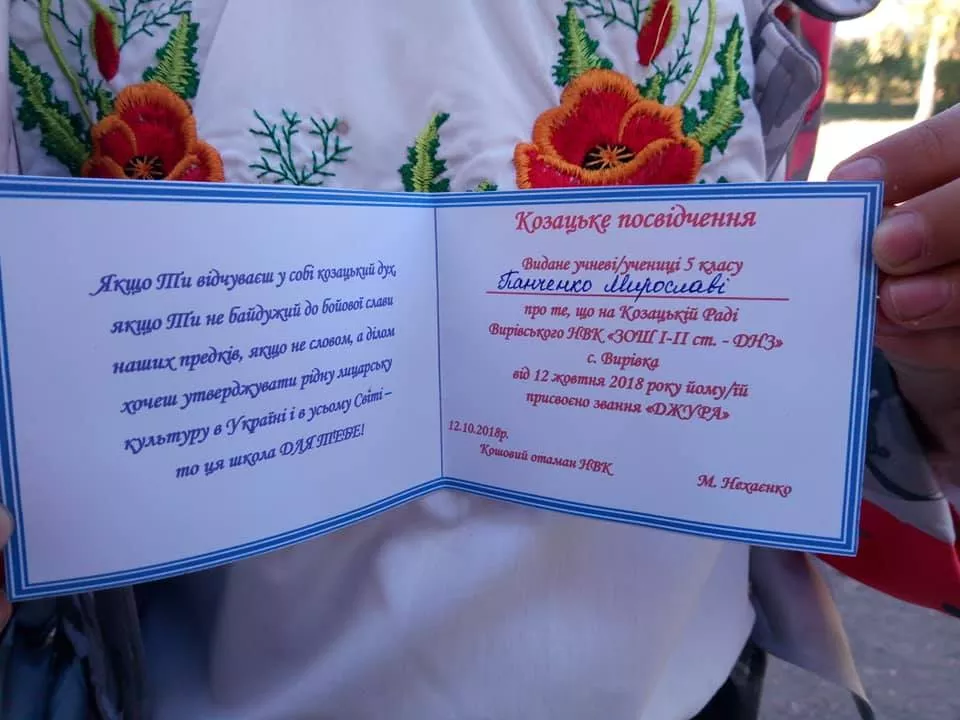 Якщо Ти відчуваєш у собі козацький дух,
якщо Ти не байдужий до бойової слави
наших предків, якщо не словом, а ділом
хочеш утверджувати рідну лицарську
культуру в Україні і в усьому Світі –
то ця школа ДЛЯ ТЕБЕ!
Козацьке посвідчення
Видане учневі/учениці 5 класу
Панченко Мирославі
про те, що на Козацькій Раді
Вирівського НВК «ЗОШ І-ІІ ст. - ДНЗ»
с. Вирівка
від 12 жовтня 2018 року йому/їй
присвоєно звання «ДЖУРА»
12.10.2018р.
Кошовий отаман НВК
М. Нехаєнко